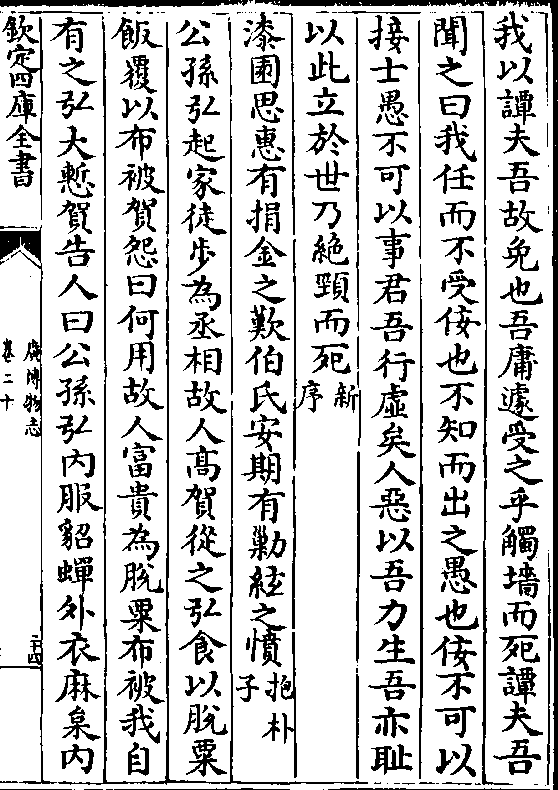 我以譚夫吾故免也吾庸遽受之乎觸墻而死譚夫吾
聞之曰我任而不受佞也不知而出之愚也佞不可以
接士愚不可以事君吾行虛矣人惡以吾力生吾亦耻
以此立於世乃絶頸而死新序
漆園思惠有捐金之歎伯氏安期有勦絃之憤抱朴子
公孫弘起家徒步為丞相故人髙賀從之弘食以脫粟
飯覆以布被賀怨曰何用故人富貴為脫粟布被我自
有之弘大慙賀告人曰公孫弘内服貂蟬外衣麻枲内
欽定四庫全書
廣博物志
卷二十
二十四